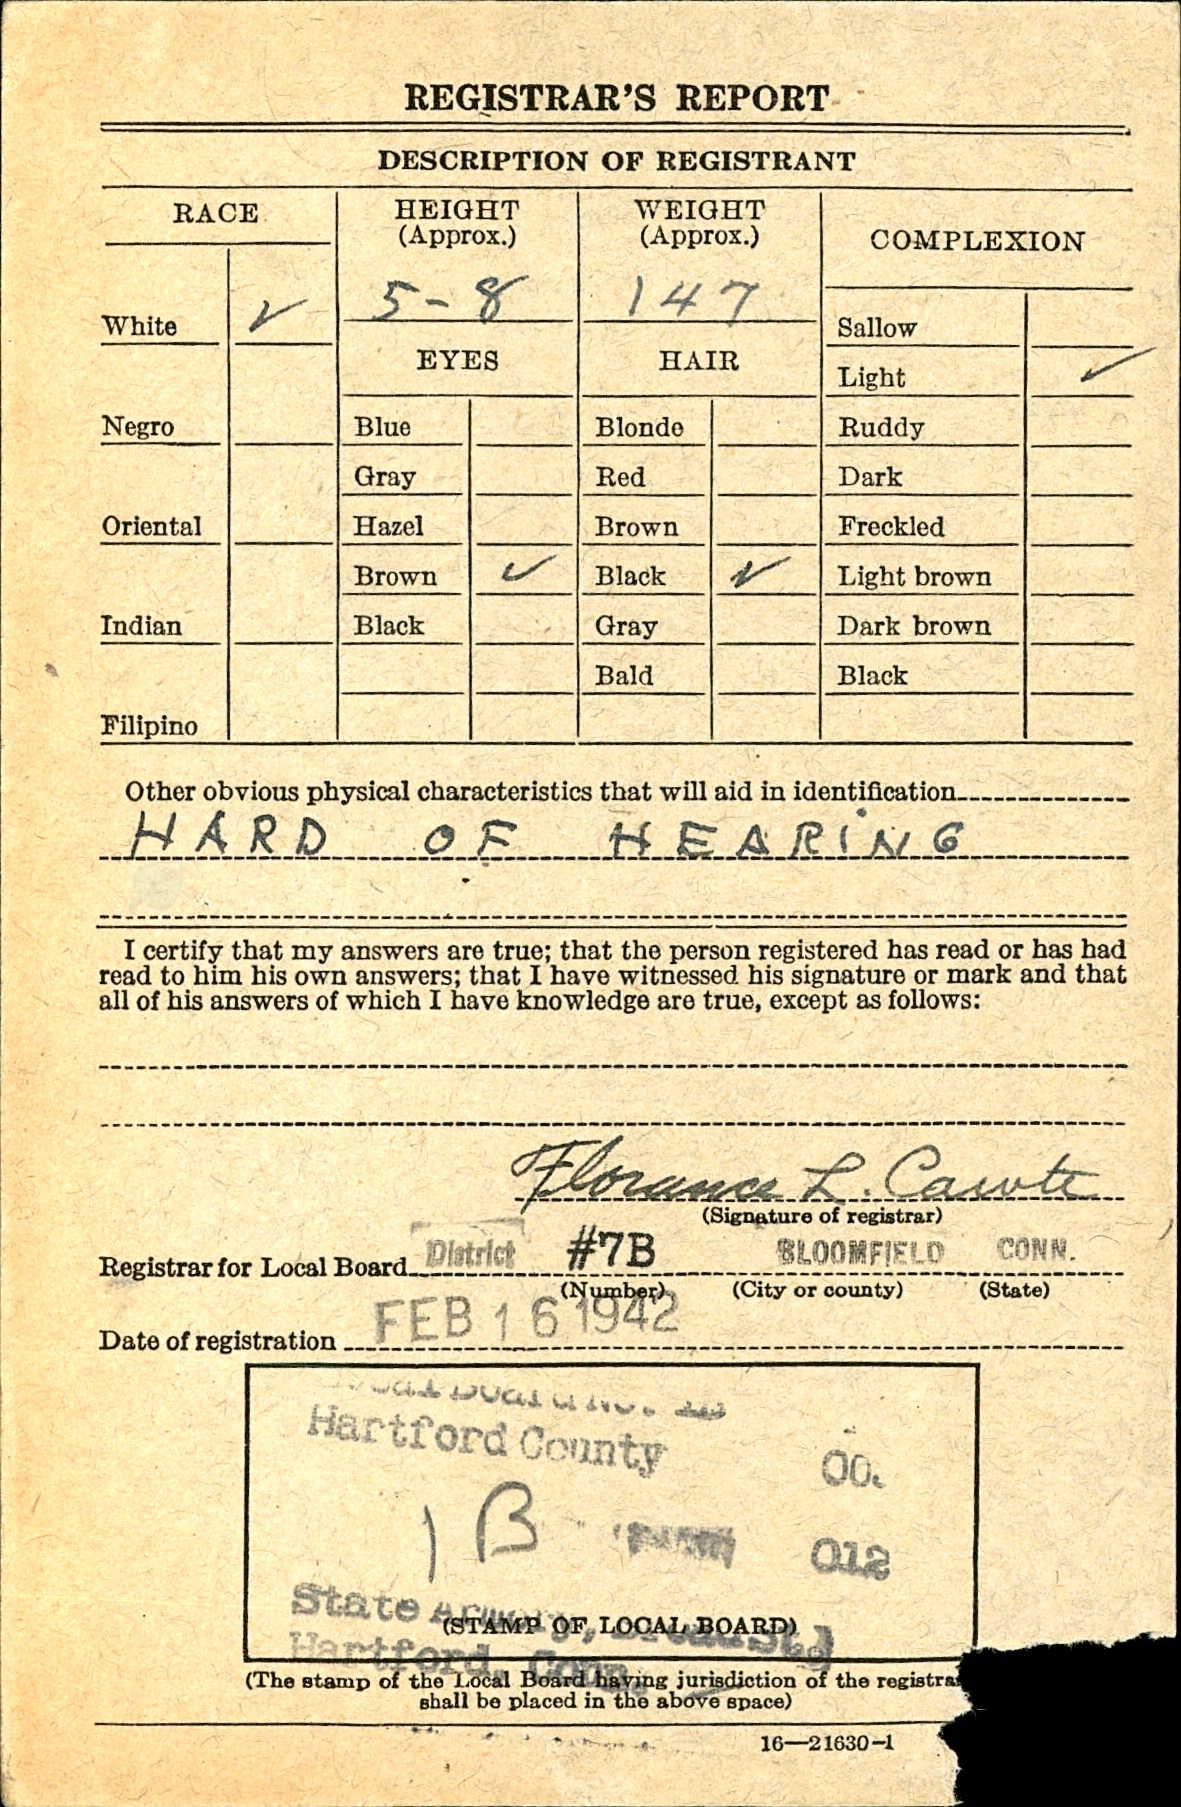 REGISTRAR'S REPORT
DESCRIPTION OF REGISTRANT
RACE
HEIGHT
(Approx.)
WEIGHT
(Approx.)
COMPLEXION
White ✓
5-8
147
Sallow
EYES
HAIR
Light ✓
Negro
Blue
Blonde
Ruddy
Gray
Red
Dark
Oriental
Hazel
Brown
Freckled
Brown ✓
Black ✓
Light brown
Indian
Black
Gray
Dark brown
Bald
Black
Filipino
Other obvious physical characteristics that will aid in identification
HARD OF HEARING
I certify that my answers are true; that the person registered has read or has had
read to him his own answers; that I have witnessed his signature or mark and that
all of his answers of which I have knowledge are true, except as follows:
Florance L. Cawte
(Signature of registrar)
Registrar for Local Board District #7B BLOOMFIELD CONN.
(Number) (City or county) (State)
Date of registration FEB 16 1942
Local Board No.
Hartford County 00.
1 B 012
State Armory, Broad St.
(STAMP OF LOCAL BOARD)
Hartford, Conn.
(The stamp of the Local Board having jurisdiction of the
shall be placed in the above space)
16—21630-1